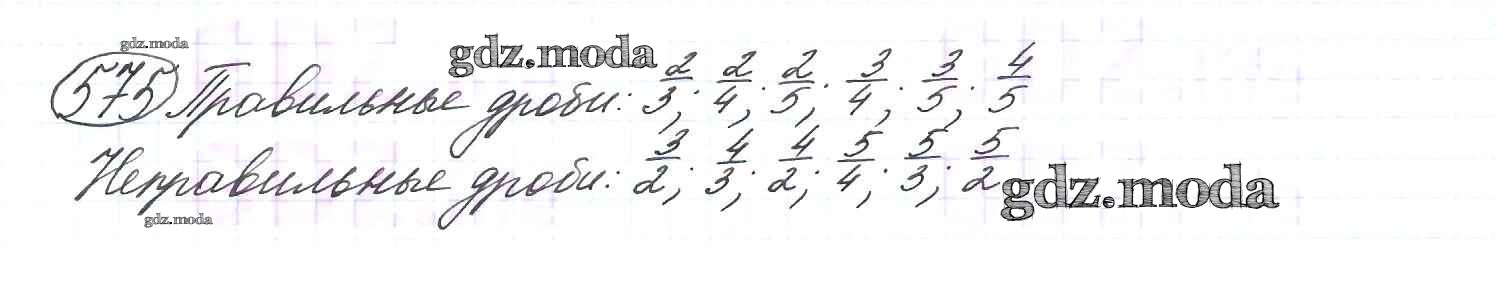 gdz.moda
gdz.moda
575 Правильные дроби: 2/3; 2/4; 2/5; 3/4; 3/5; 4/5
Неправильные дроби: 3/2; 4/3; 4/2; 5/4; 5/3; 5/2
gdz.moda
gdz.moda